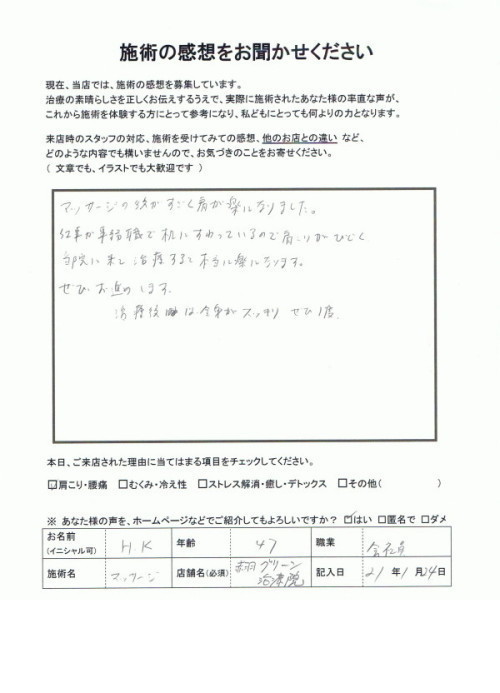 施術の感想をお聞かせください
現在、当店では、施術の感想を募集しています。
治療の素晴らしさを正しくお伝えするうえで、実際に施術されたあなた様の率直な声が、
これから施術を体験する方にとって参考になり、私どもにとっても何よりの力となります。
来店時のスタッフの対応、施術を受けてみての感想、他のお店との違い など、
どのような内容でも構いませんので、お気づきのことをお寄せください。
（ 文章でも、イラストでも大歓迎です ）
マッサージの後がすごく肩が楽になりました。
仕事が事務職で机にすわっているので肩こりがひどく
当院に来て治療すると本当に楽になります。
ぜひ、お進めします。
治療後は全身がスッキリ ぜひ1度。
本日、ご来店された理由に当てはまる項目をチェックしてください。
☑肩こり・腰痛 □むくみ・冷え性 □ストレス解消・癒し・デトックス □その他（ ）
※ あなた様の声を、ホームページなどでご紹介してもよろしいですか？ ☑はい □匿名で □ダメ
お名前 (イニシャル可) H.K 年齢 47 職業 会社員
施術名 マッサージ 店舗名(必須) グリーン治療院 記入日 21 年 1 月 24 日